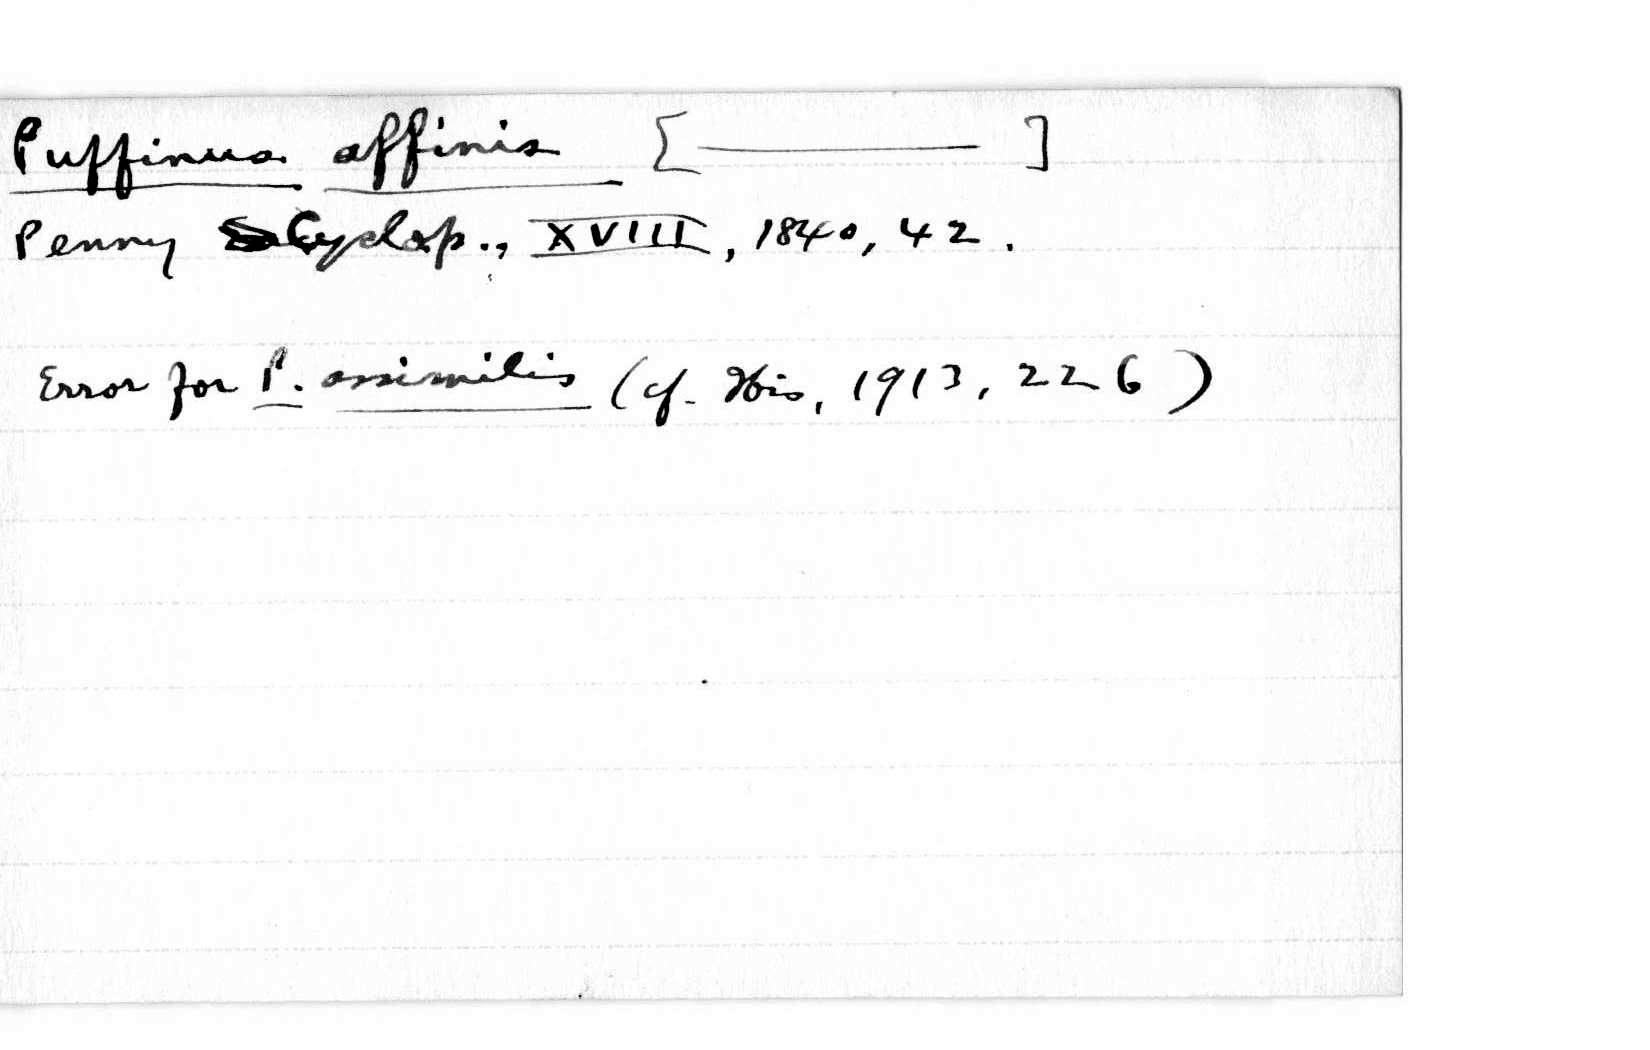 Puffinus affinis [ ——— ]
Penny Cyclop., XVIII, 1840, 42.
Error for P. assimilis (cf. Ibis, 1913, 226)